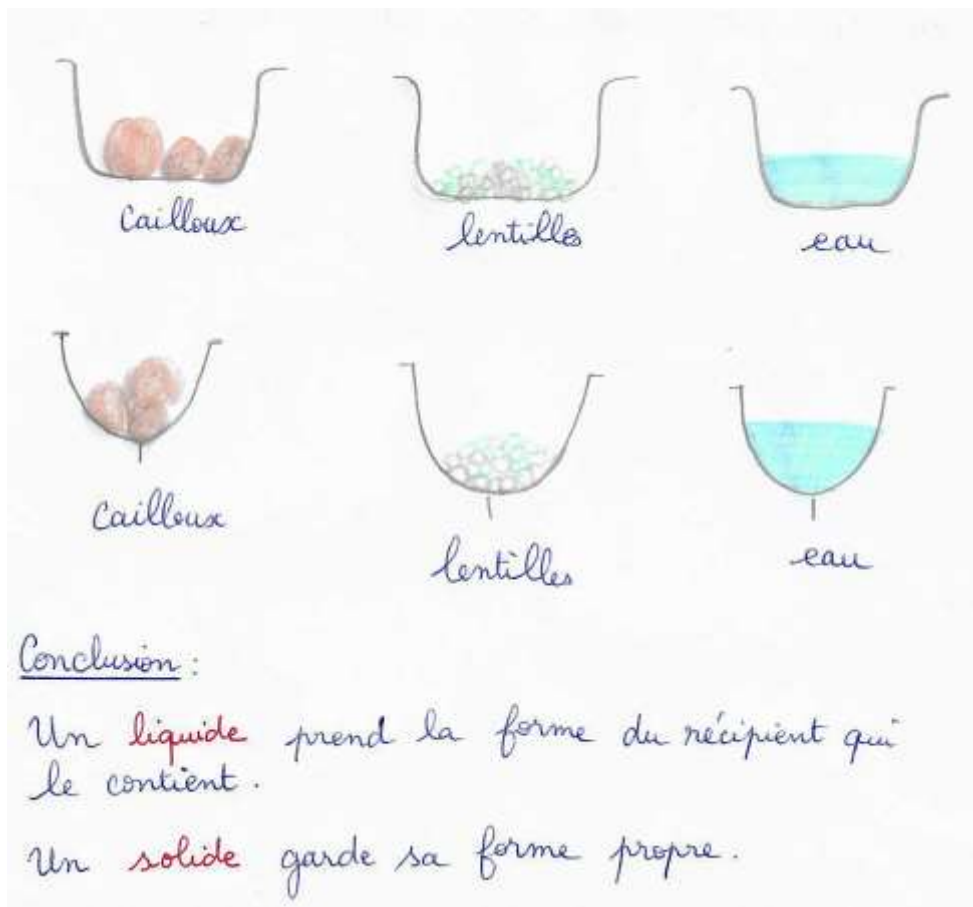 cailloux
lentilles
eau
cailloux
lentilles
eau
Conclusion :
Un liquide prend la forme du récipient qui
le contient.
Un solide garde sa forme propre.